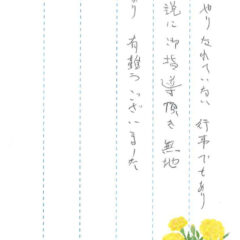 やりなれていない 行事でもあり
説に御指導頂き無地
り 有難うございました